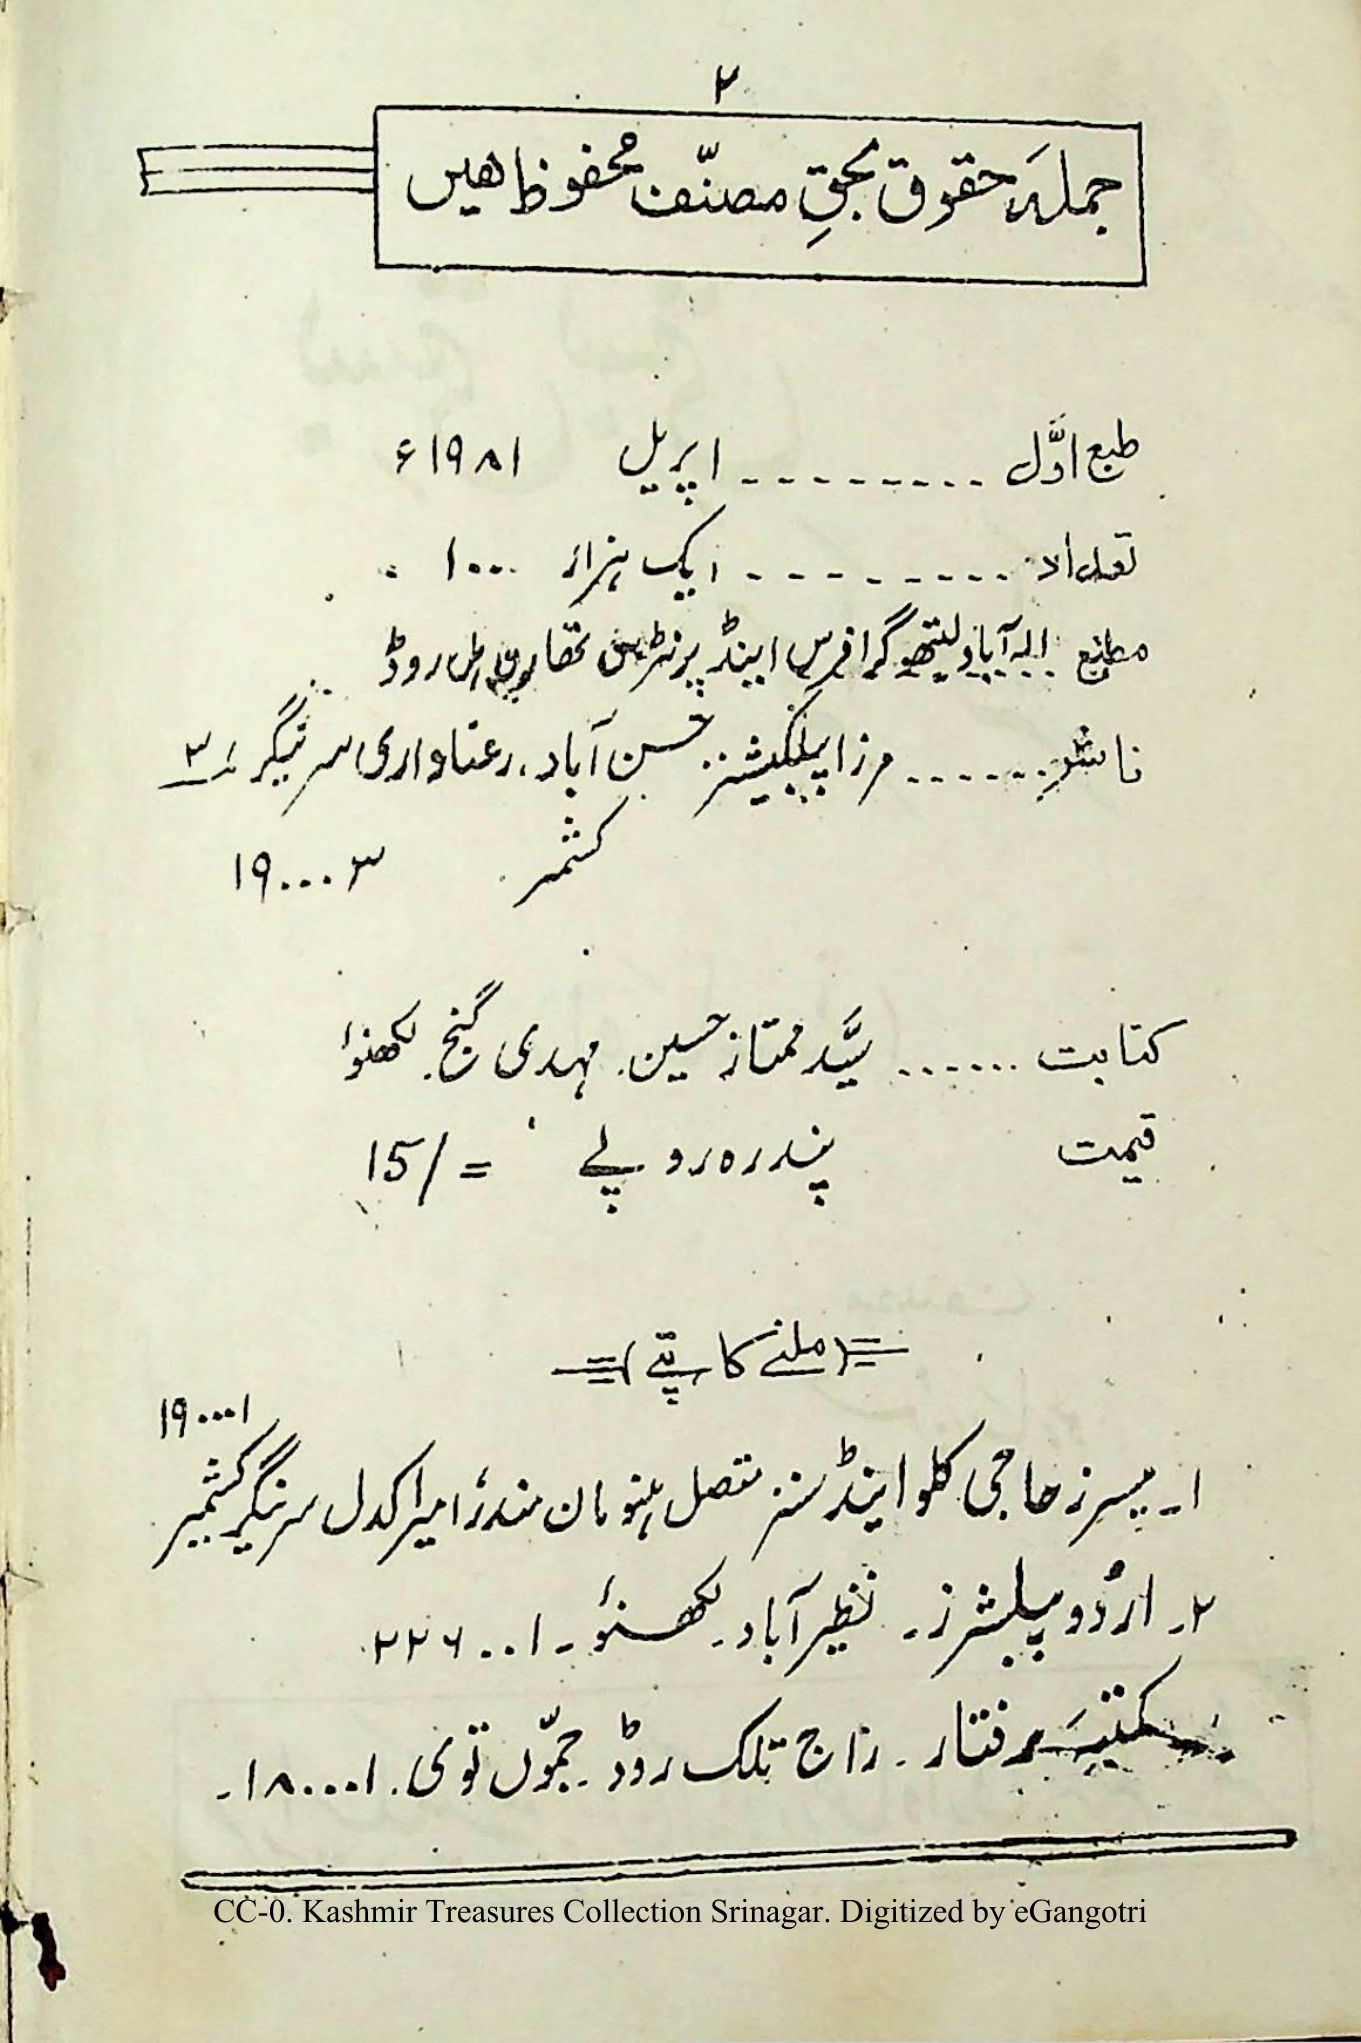 ۲
جملہ حقوق بحقِ مصنّف محفوظ ھیں
طبع اوّل ......... اپریل ۱۹۸۱ء
تعداد ......... ایک ہزار ۱۰۰۰
مطبع الہ آباد لیتھوگرافرس اینڈ پرنٹرس روڈ
ناشر ....... مرزا پبلکیشنز حسن آباد، رعناواری سرینگر ۳
کشمیر ۱۹۰۰۰۳
کتابت ...... سیّد ممتاز حسین۔ مہدی گنج۔ لکھنؤ
قیمت پندرہ روپے 15/=
(ملنے کا پتے)
۱۹۰۰۰۱
۱۔ میسرز حاجی کلو اینڈ سنز متصل ہنومان مندر امیرا کدل سرینگر کشمیر
۲۔ اردو پبلشرز۔ نظیر آباد۔ لکھنؤ۔ ۲۲۶۰۰۱
مکتبہ رفتار۔ راج تلک روڈ۔ جمّوں توی۔ ۱۸۰۰۰۱۔
CC-0. Kashmir Treasures Collection Srinagar. Digitized by eGangotri